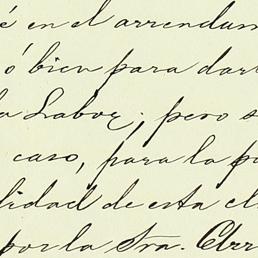 é en el arrendam
ó bien para dar
a Labor; pero s
caso, para la p
lidad de esta cl
por la Sra. Arr